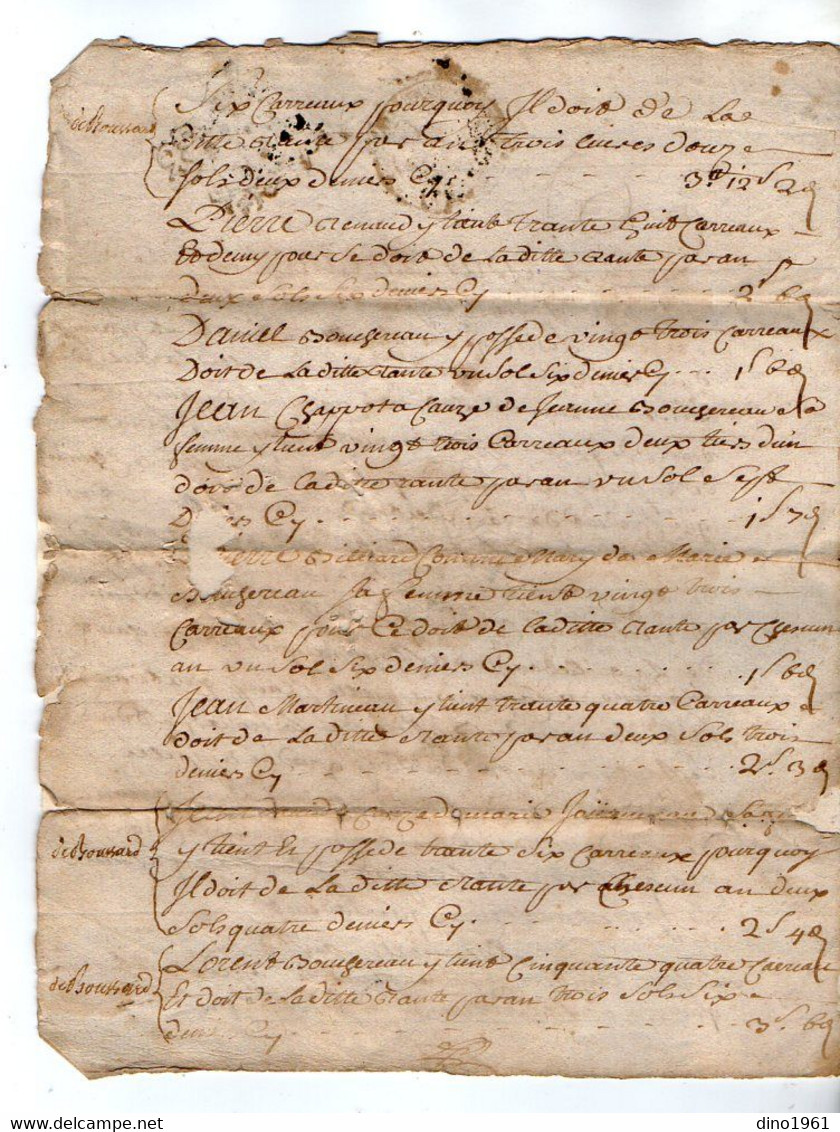 Six Carreaux pourquoy Il doit de La
de Boussard
ditte rante par an trois livres douze
sols deux deniers Cy . . . 3lt 12s 2d
Pierre Renaud y tient trante huit Carreaux
Et demy pour ce doit de La ditte rante par an
deux sols six deniers Cy . . . 2s 6d
Daniel Bougereau y possede vingt trois Carreaux
Doit de La ditte rante un sol six deniers Cy . . . 1s 6d
Jean Chappot a Cauze de Jeanne Bougereau sa
femme y tient vingt trois Carreaux deux tiers d'un
doit de la ditte rante par an un sol sept
Deniers Cy . . . 1s 7d
Pierre Billiard Comme Mary de Marie
Bougereau sa femme tient vingt trois
Carreaux pour Ce doit de la ditte rante par Chescun
an un sol six deniers Cy . . . 1s 6d
Jean Martineau y tient trante quatre Carreaux
doit de La ditte rante par an deux sols trois
deniers Cy . . . 2s 3d
Cauze de marie
de Boussard
y tient Et possede trante six Carreaux pourquoy
Il doit de La ditte rante par Chescun an deux
sols quatre deniers Cy . . . 2s 4d
Lorent Bougereau y tient Cinquante quatre Carreau
de Boussard
Et doit de la ditte rante par an trois sols six
deniers Cy . . . 3s 6d
dino1961